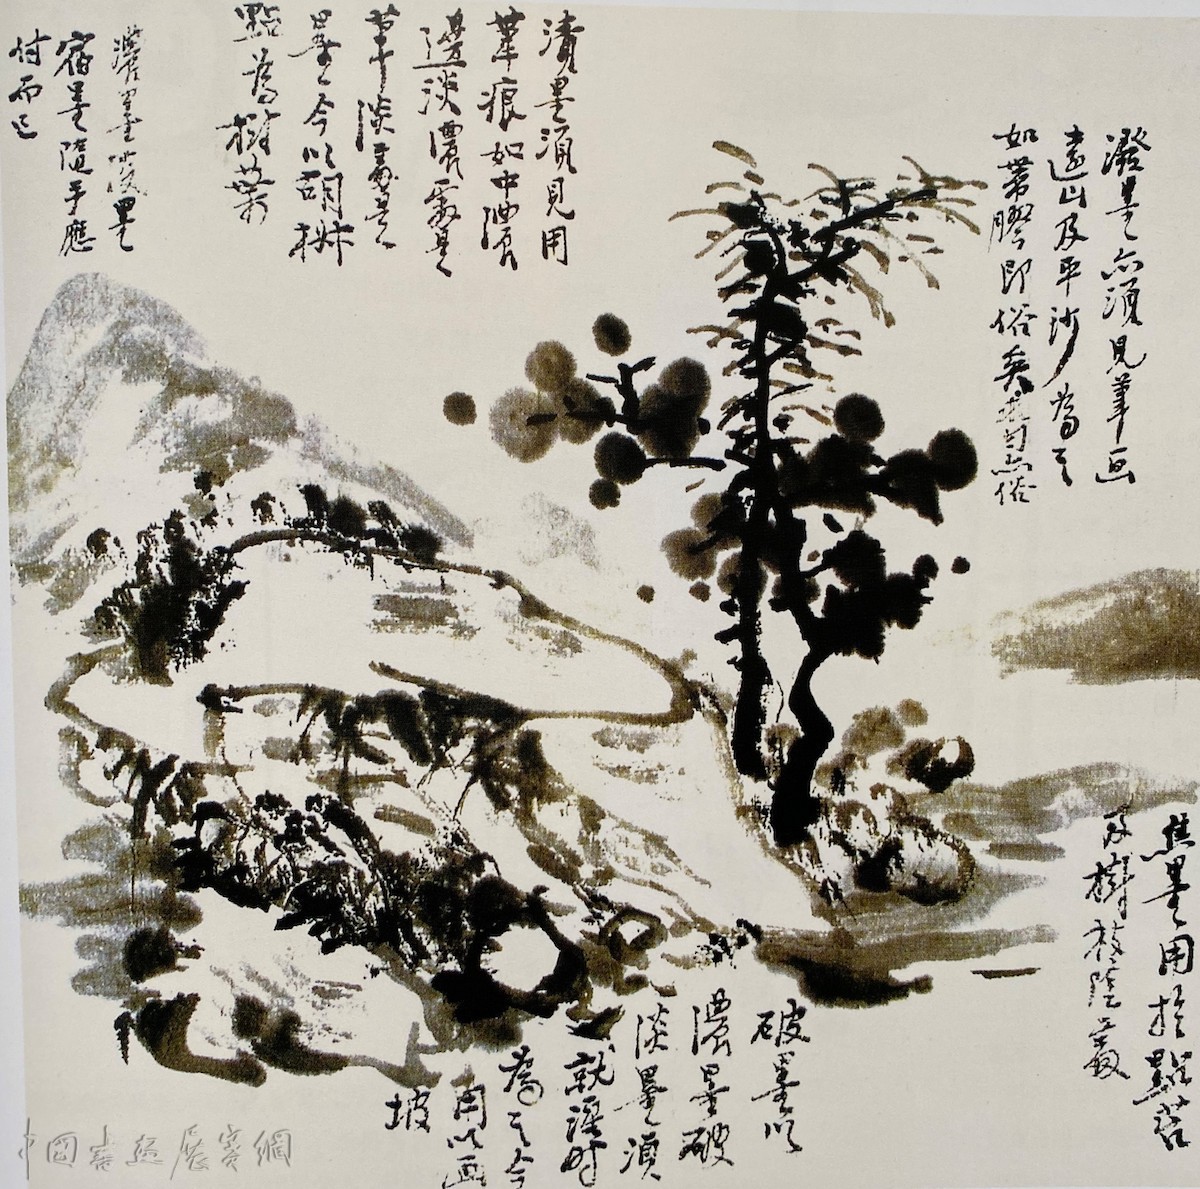 潑墨亦須見筆画
遠山及平沙為之
如帶膠即俗矣
漬墨須見用
筆痕如中濃
邊淡濃處是
筆淡處是
墨今以胡椒
點為樹葉
濃墨
宿墨隨手應
付而已
焦墨用於點苔
及樹枝陰處
破墨以
濃墨破
淡墨須
就溼時
為之今
用以画
坡
中國書畫展賽網